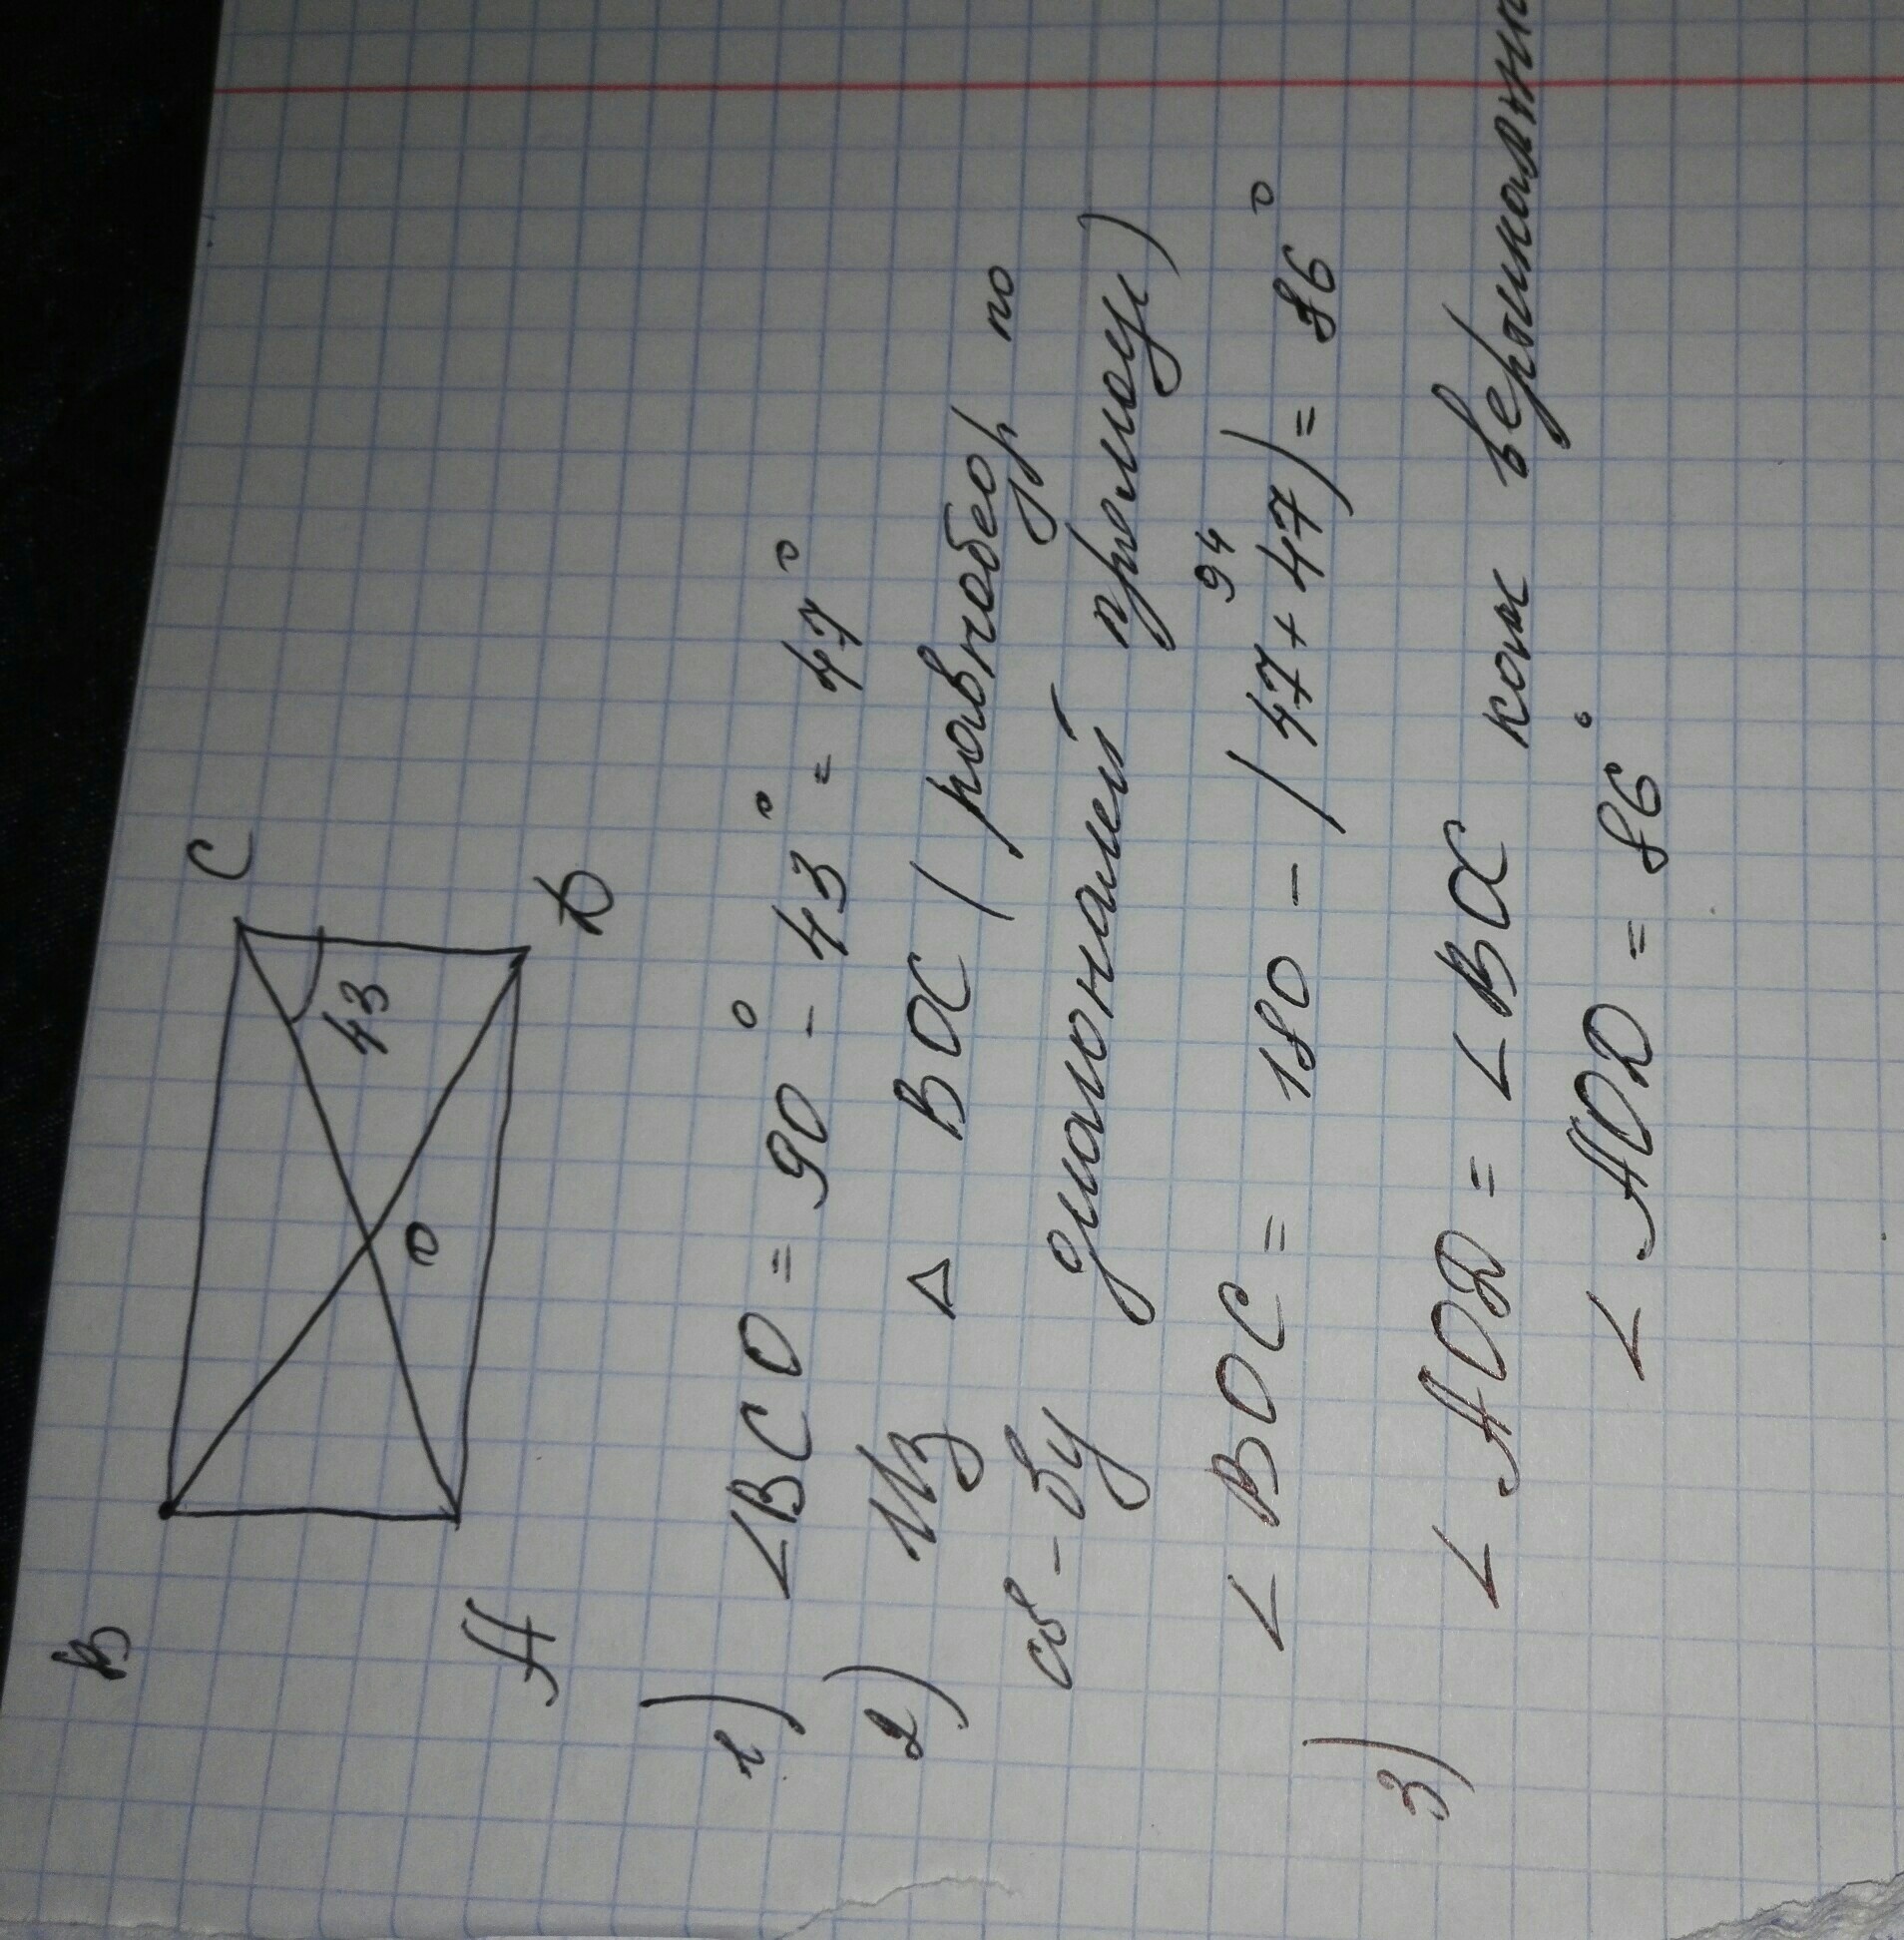 B
C
43
O
A
D
1) ∠BCO = 90° - 43° = 47°
2) Из △ BOC (равнобедр по
св-ву диагоналей прямоуг)
94
∠ BOC = 180 - (47+47) = 86°
3) ∠ AOD = ∠ BOC как
∠ AOD = 86°